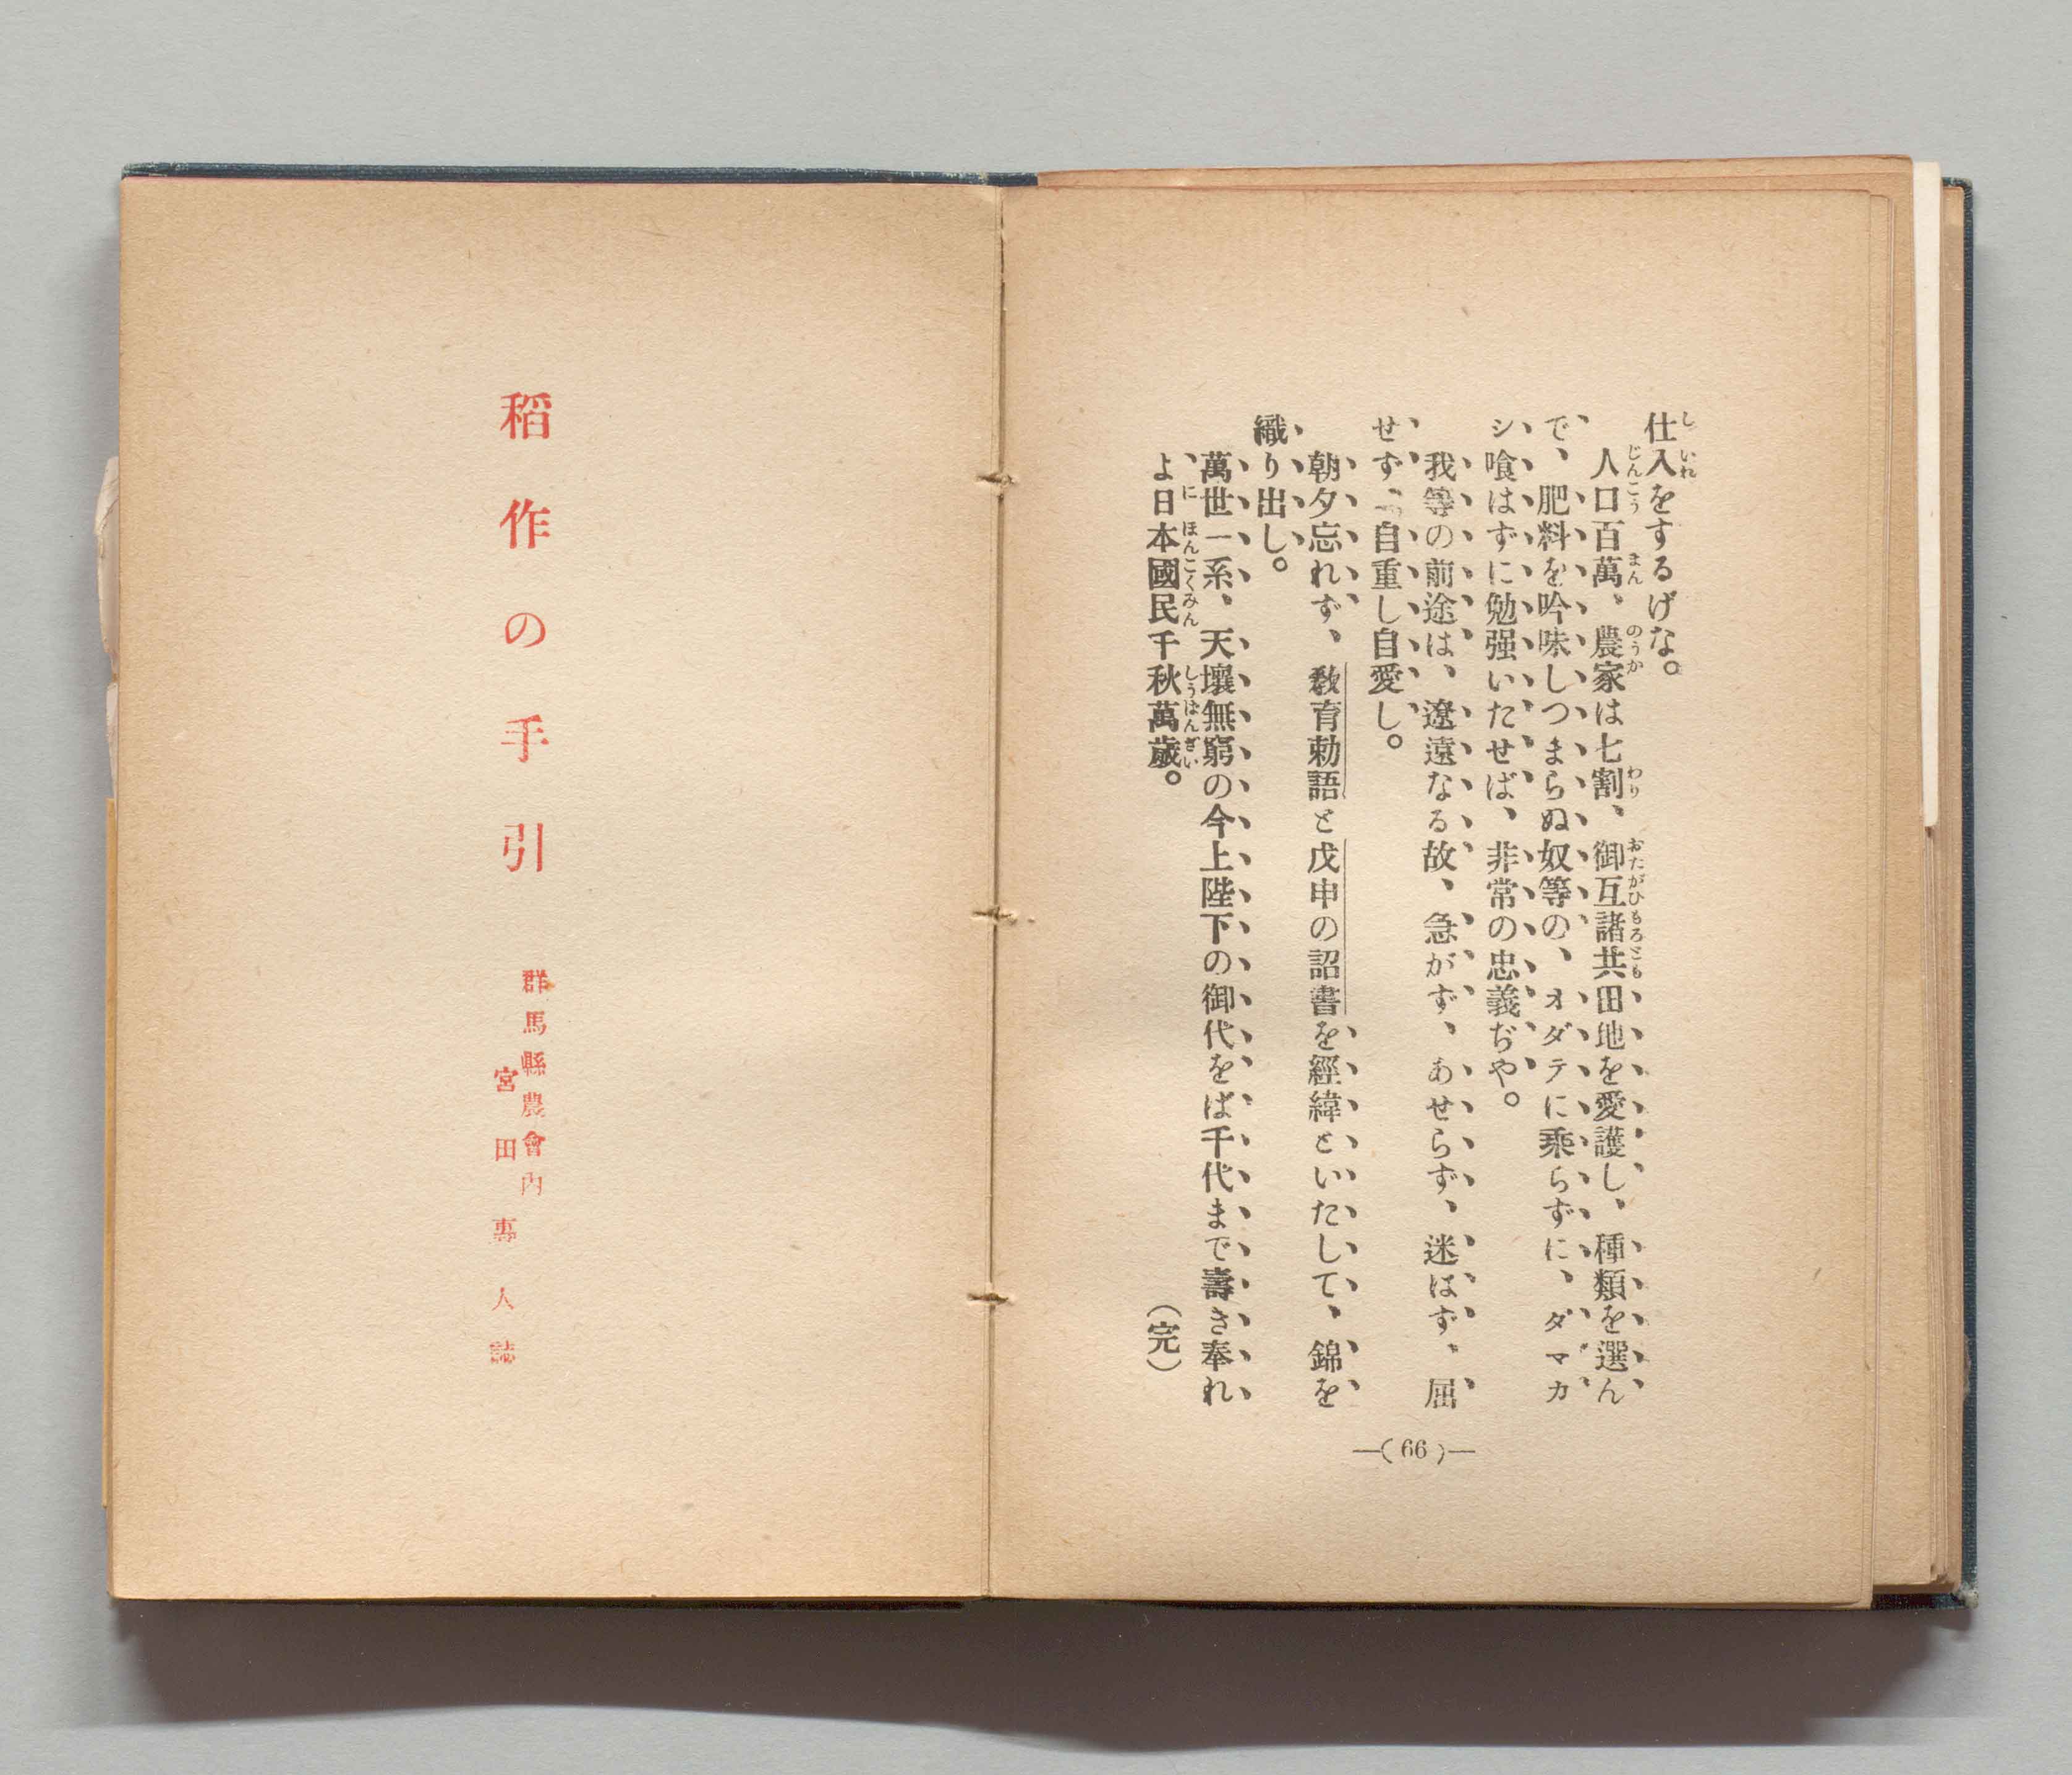 仕入をするげな。
人口百萬、農家は七割、御互諸共田地を愛護し、種類を選ん
で、肥料を吟味しつまらぬ奴等の、オダテに乘らずに、ダマカ
シ喰はずに勉强いたせば、非常の忠義ぢや。
我等の前途は、遼遠なる故、急がず、あせらず、迷はず、屈
せず、自重し自愛し。
朝夕忘れず、敎育勅語と戊申の詔書を經緯といたして、錦を
織り出し。
萬世一系、天壤無窮の今上陛下の御代をば千代まで壽き奉れ
よ日本國民千秋萬歲。
（完）
—( 66 )—
稻作の手引
群馬縣農會內
宮田 人誌